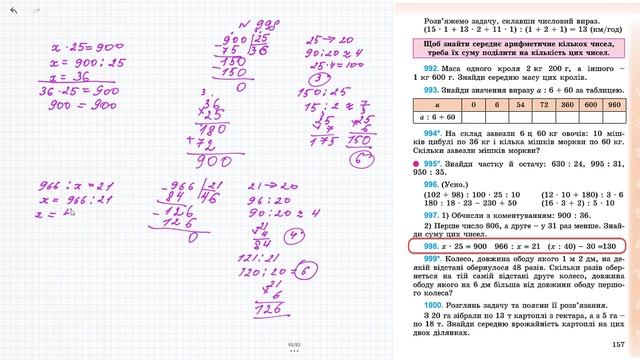 № 998
x · 25 = 900
x = 900 : 25
x = 36
36 · 25 = 900
900 = 900
900 | 25
75 | 36
150
150
0
3
36
× 25
180
+ 72
900
25 → 20
90 : 20 ≈ 4
25 · 4 = 100
3
150 : 25
15 : 2 ≈ 7
25
× 7
175
3
25
× 6
150
6
966 : x = 21
x = 966 : 21
x =
966 | 21
84 | 46
126
126
0
21 → 20
96 : 20
90 : 20 ≈ 4
21
× 4
84
4
121 : 21
120 : 20 = 6
21
× 6
126
93/93
Розв’яжемо задачу, склавши числовий вираз.
(15 · 1 + 13 · 2 + 11 · 1) : (1 + 2 + 1) = 13 (км/год)
Щоб знайти середнє арифметичне кількох чисел,
треба їх суму поділити на кількість цих чисел.
992. Маса одного кроля 2 кг 200 г, а іншого –
1 кг 600 г. Знайди середню масу цих кролів.
993. Знайди значення виразу a : 6 + 60 за таблицею.
a 0 6 54 72 360 600 960
a : 6 + 60
994°. На склад завезли 6 ц 60 кг овочів: 10 міш-
ків цибулі по 36 кг і кілька мішків моркви по 60 кг.
Скільки завезли мішків моркви?
995°. Знайди частку й остачу: 630 : 24, 995 : 31,
950 : 35.
996. (Усно.)
(102 + 98) : 100 · 25 : 10 (12 · 10 + 180) : 3 · 6
180 : 18 · 23 – 230 + 50 (16 · 3 + 2) : 5 · 10
997. 1) Обчисли з коментуванням: 900 : 36.
2) Перше число 806, а друге – у 31 раз менше. Знай-
ди суму цих чисел.
998. x · 25 = 900 966 : x = 21 (x : 40) – 30 =130
999°. Колесо, довжина ободу якого 1 м 2 дм, на де-
якій відстані обернулося 48 разів. Скільки разів обер-
неться на тій самій відстані друге колесо, довжина
ободу якого на 6 дм більша від довжини ободу першо-
го колеса?
1000. Розглянь задачу та поясни її розв’язання.
З 20 га зібрали по 13 т картоплі з гектара, а з 5 га –
по 18 т. Знайди середню врожайність картоплі на цих
двох ділянках.
157